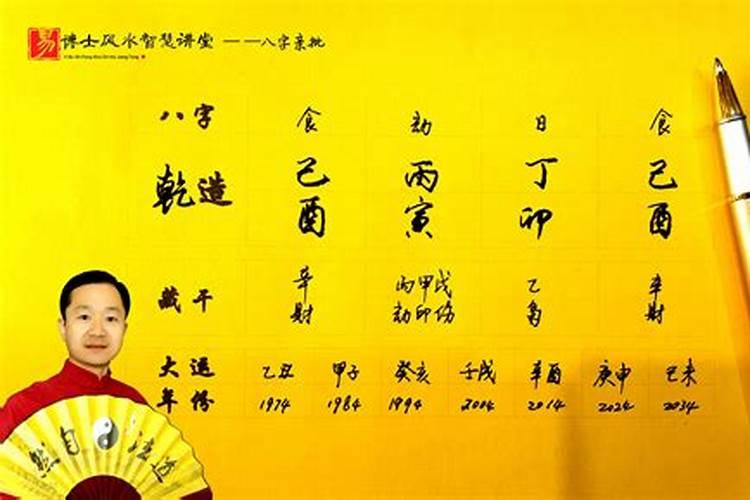 易 傅士风水智慧讲堂 ——八字亲批
八字 食 劫 日 食
乾造 己 丙 丁 己
酉 寅 卯 酉
藏干 辛 丙甲戊 乙 辛
财 劫印伤 枭 财
大运 乙丑 甲子 癸亥 壬戌 辛酉 庚申 己未
年份 1974 1984 1994 2004 2014 2024 2034
然自法道